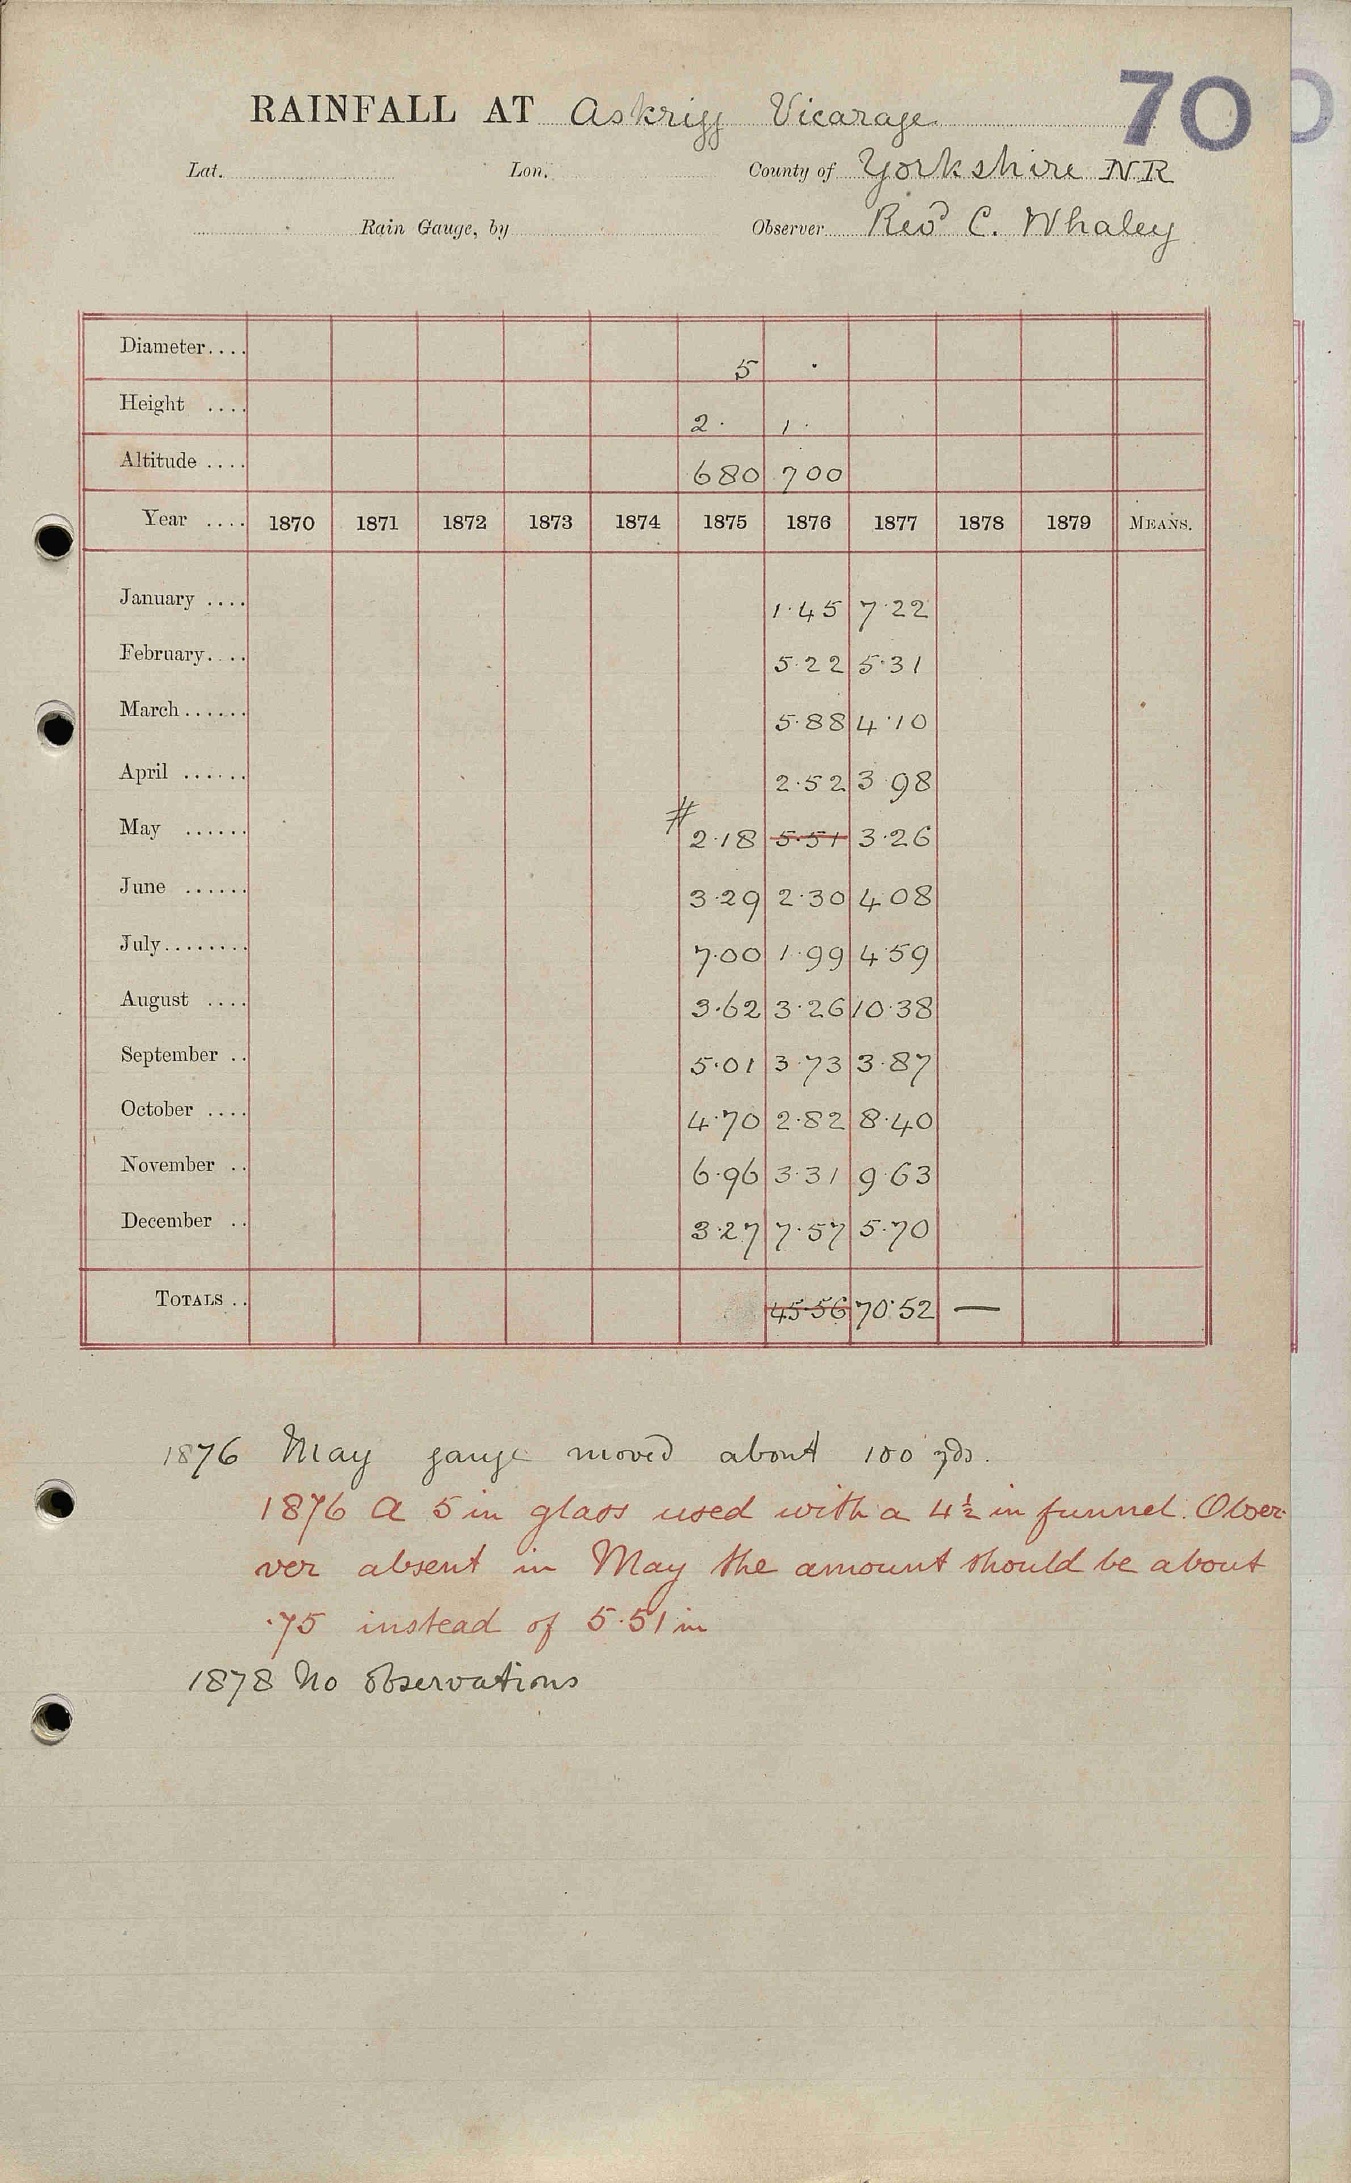 70
RAINFALL AT Askrigg Vicarage
Lat. Lon. County of Yorkshire NR
Rain Gauge, by Observer Revd C. Whaley
Diameter.... 5 ·
Height .... 2· 1·
Altitude .... 680 700
Year .... 1870 1871 1872 1873 1874 1875 1876 1877 1878 1879 MEANS.
January .... 1·45 7·22
February.... 5·22 5·31
March...... 5·88 4·10
April ...... 2·52 3·98
May ...... # 2·18 5·51 3·26
June ...... 3·29 2·30 4·08
July........ 7·00 1·99 4·59
August .... 3·62 3·26 10·38
September .. 5·01 3·73 3·87
October .... 4·70 2·82 8·40
November .. 6·96 3·31 9·63
December .. 3·27 7·57 5·70
TOTALS .. 45·56 70·52 —
1876 May gauge moved about 100 yds.
1876 A 5 in glass used with a 4½ in funnel. Obser-
ver absent in May the amount should be about
·75 instead of 5·51 in
1878 No observations